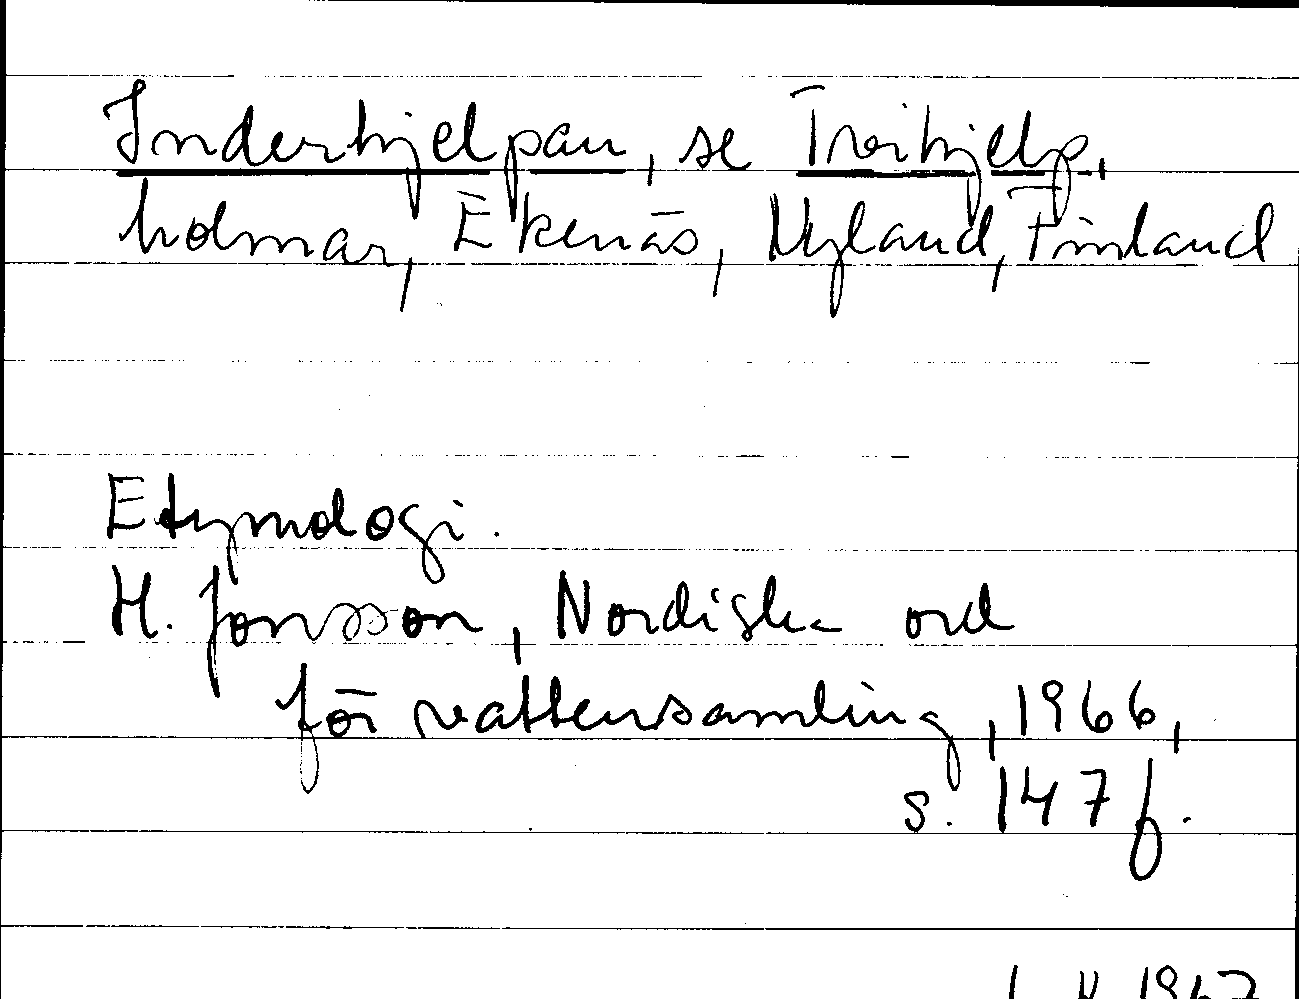 Inderhjelpan, se Treihjelp,
holmar, Ekenäs, Nyland, Finland
Etymologi.
H. Jonsson, Nordiska ord
för vattensamling, 1966,
s. 147 f.
1967